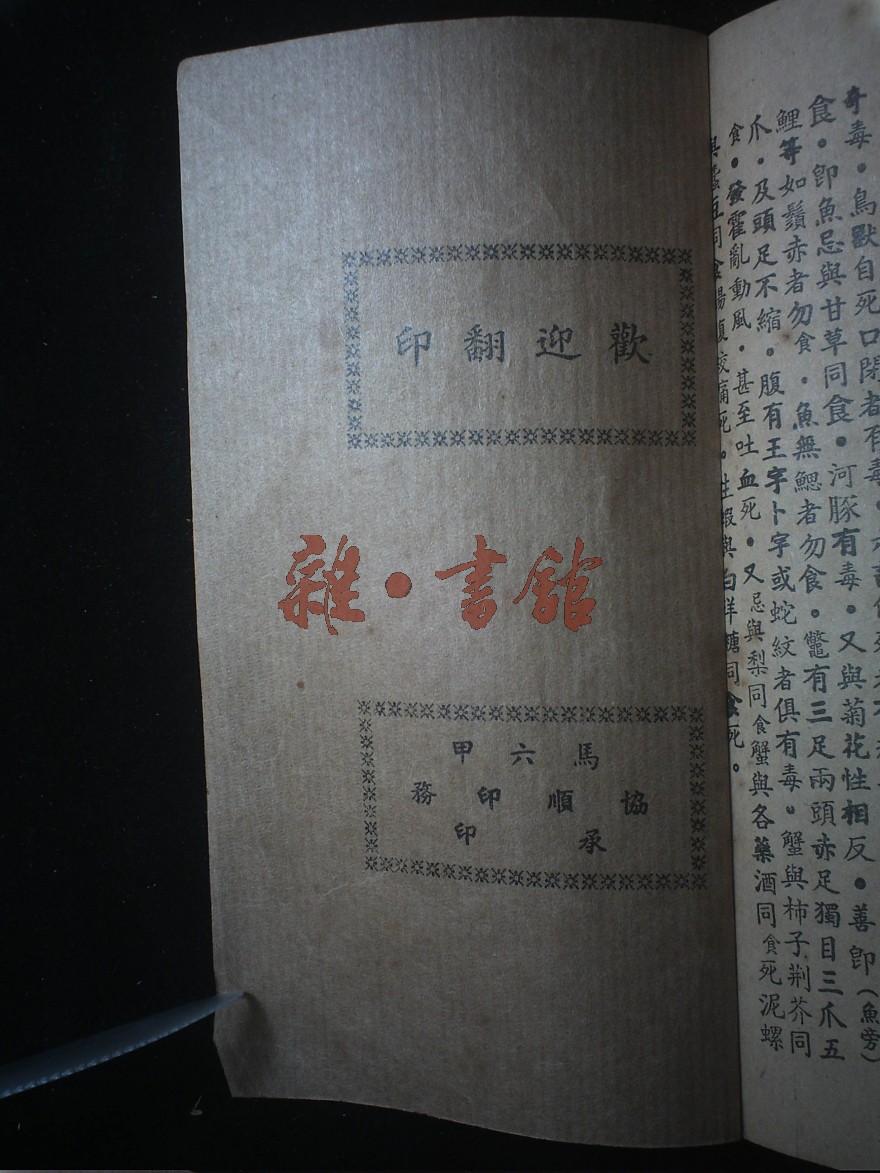 奇毒。鳥獸自死口閉者有毒。
食。卽魚忌與甘草同食。河豚有毒。又與菊花性相反。善卽(魚旁)
鯉等如鬚赤者勿食。魚無鰓者勿食。鼈有三足兩頭赤足獨目三爪五
爪。及頭足不縮。腹有王字卜字或蛇紋者俱有毒。蟹與柿子荆芥同
食。發霍亂動風。甚至吐血死。又忌與梨同食蟹與各藥酒同食死泥螺
同食腸腹絞痛死。生蝦與白洋糖同食死。
歡迎翻印
雜·書館
馬六甲
協順印務
承印